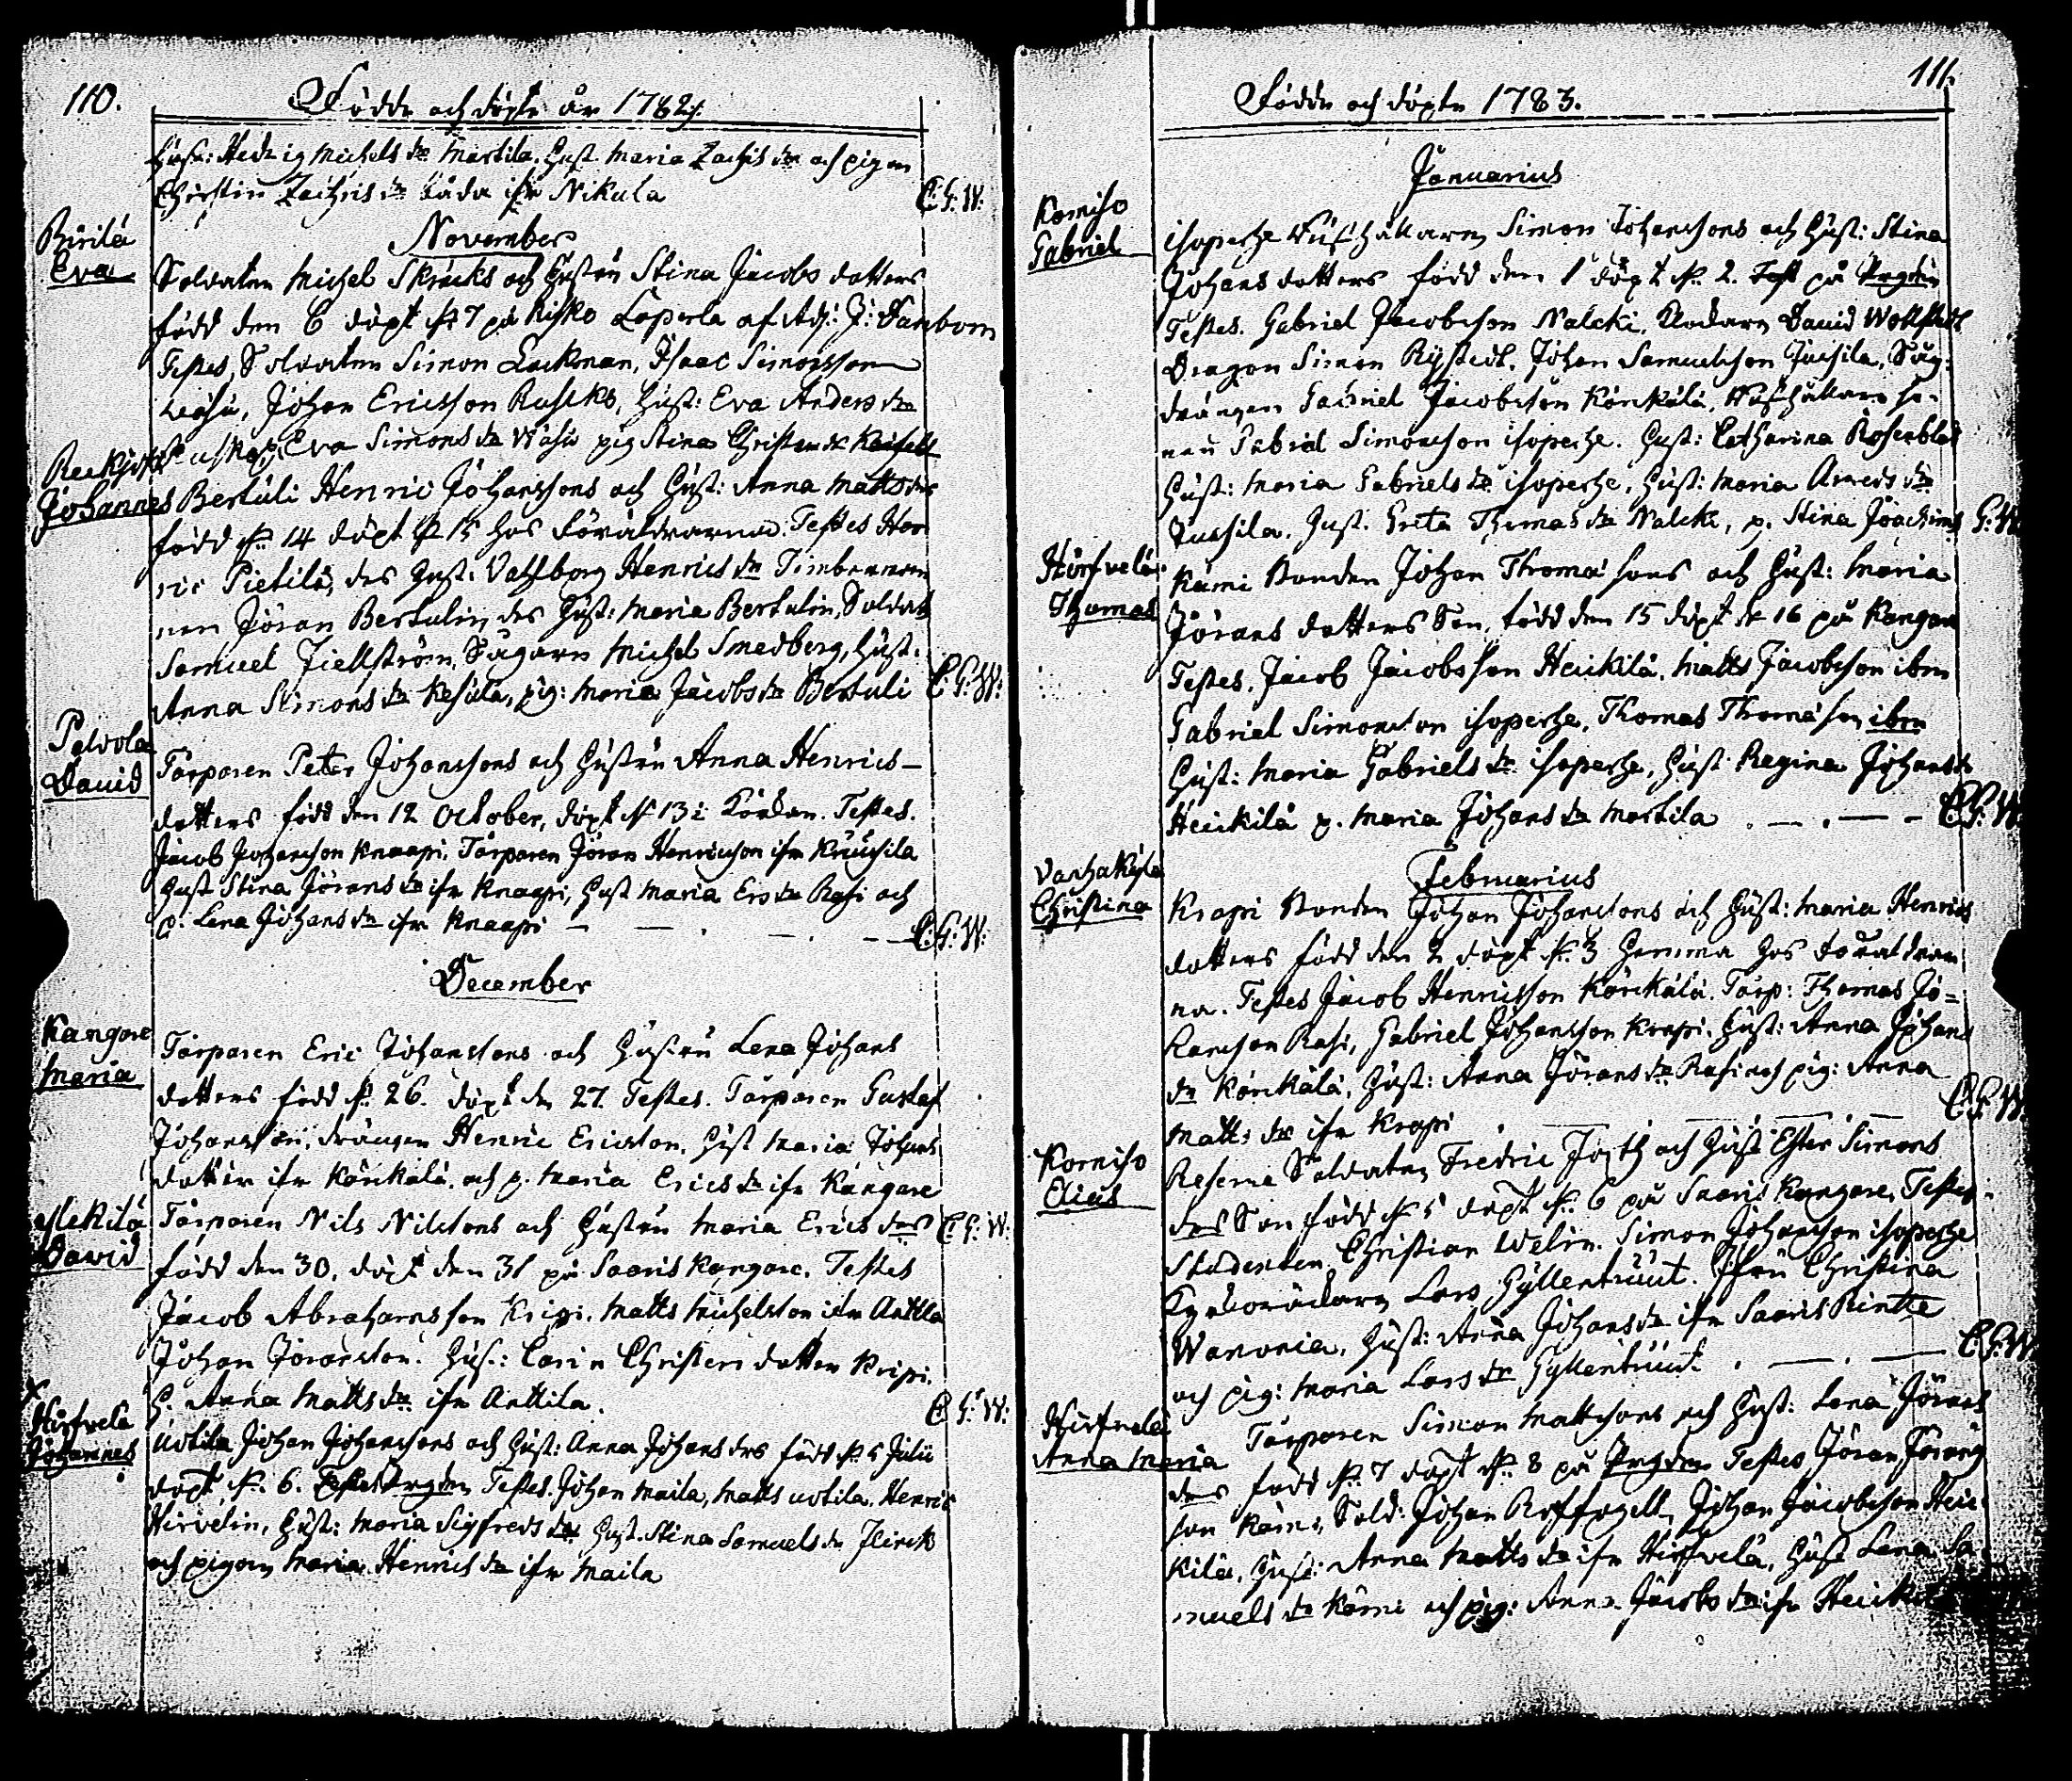 110.
Födde och döpte år 1782.
Hust: Hedvig Michels dr Martila. Hust Maria Zachris dr och pigan
Christin Zachris dr båda ifr Nikula
C:G:W:
November
Eva
Soldaten Michel Skräcks och Hustru Stina Jacobs dotters
född den 6 döpt d: 7 på Risko Loperla af Adj: J: Tanbom
Testes, Soldaten Simon Lackman, Isaac Simonsson
Johan Ericsson Ruscko, Hust: Eva Anders dr
Eva Simons dr Wäsü pig Stina Christers dr
Johannes
Bertuli Henric Johanssons och Hust: Anna Matts drs
född d: 14 döpt d 15 hos Föräldrarna. Testes Hen
ric Pietilä, des Hust: Valborg Henrics dr Timberman
nen Jöran Bertulin, des Hust: Maria Bertulin, Soldat
Samuel Fiellström, Sågaren Michel Smedberg, Hust:
Anna Simons dr Kesälä, pig: Maria Jacobs dr Bertuli
C:G:W:
Pelvola
David
Torparen Peter Johanssons och Hustru Anna Henrics-
dotters född den 12 October, döpt d 13 i Kördan. Testes.
Jacob Johansson Knaapi, Torparen Jöran Henricsson ifr Kruusila
Hust Stina Jörans dr ifr Knaapi, Hust Maria Ers dr Rasi och
p. Lena Johans dr ifr Knaapi
C:G:W:
December
Kangare
Maria
Torparen Eric Johanssons och Hustru Lena Johans
dotters född d: 26. döpt dn 27. Testes. Torparen Gustaf
Johansson, drängen Henric Ericsson, Hust Maria Johans
dotter ifr Körckälä, och p. Maria Erics dr ifr Kangare
David
Torparen Nils Nilssons och Hustru Maria Erics drs
C:G:W:
född den 30. döpt den 31 på Saaris Kangare. Testes
Jacob Abrahamsson Kripi. Matts Michelsson ifr Anttila
Johan Jöransson. Hus: Carin Christers dotter Kripi.
H. Anna Matts dr ifr Anttila.
C:G:W:
x
Hirfvelä
Johannes
Uotila Johan Johanssons och Hust: Anna Johans drs född d: 5 Julii
döpt d: 6. Testes. Johan Maila, Matts Uotila. Henric
Hirvelin, Hust: Maria Sigfreds dr Hust. Stina Samuels dr
och pigan Maria Henrics dr ifr Maila
111.
Födde och döpte 1783.
Januarius
Komiso
Gabriel
isoperhe Simon Johanssons och Hust: Stina
Johans dotters född den 1 döpt d: 2.
Testes. Gabriel Jacobsson Nalcki, Klockaren David Wollstedt
Dragon Simon Rystedt, Johan Samuelsson Jussila, Såg-
drängen Gabriel Jacobsson Körckälä,
Gabriel Simonsson isoperhe. Hust: Catharina Rosenblad
Hust: Maria Gabriels dr isoperhe, Hust: Maria
Jussila. Hust. Greta Thomas dr Nalcki, p. Stina Joachims
G:W
Hirfvelä
Thomas
Kämi Bonden Johan Thomä sons och Hust: Maria
Jörans dotters Son, född den 15 döpt d: 16 på Kangare
Testes, Jacob Jacobsson Heickilä, Matts Jacobsson ibm
Gabriel Simonsson isoperhe, Thomas Thomä son ibm
Hust: Maria Gabriels dr isoperhe, Hust Regina Johans dr
Heickilä p. Maria Johans dr Martila
C:G:W
Februarius
Vanhakylä
Christina
Krapi Bonden Johan Johanssons och Hust: Maria Henrics
dotters född den 2 döpt d: 3 hemma hos Föräldrar
na. Testes Jacob Henricsson Körckälä. Torp: Thomas Jö-
ransson Rasi, Gabriel Johansson Krapi. Hust: Anna Johans
dr Körckälä, Hust: Anna Jörans dr Rasi och pig: Anna
Matts dr ifr Krapi
C:G:W
Komiso
Elias
Reserve Soldaten Fredric och Hust Ester Simons
drs Son född d 5 döpt d: 6 på Saaris Kangare, Testes
Studenten Christian Welin. Simon Johansson isoperhe
Kyrkovärden Lars Gyllenkruut. Jfru Christina
Wanonia, Hust: Anna Johans dr ifr Saaris
och pig: Maria Lars dr Gyllenkruut
C:G:W
Hirfvelä
Anna Maria
Torparen Simon Mattssons och Hust: Lena Jörans
drs född d: 7 döpt d: 8 på Testes Jöran Jörans
son Kämi, Sold: Johan Johan Jacobsson Heic
kilä, Hust: Anna Matts dr ifr Hirfvelä, Hust Lena Sa
muels dr Kämi och pig: Anna Jacobs dr ifr Heickilä